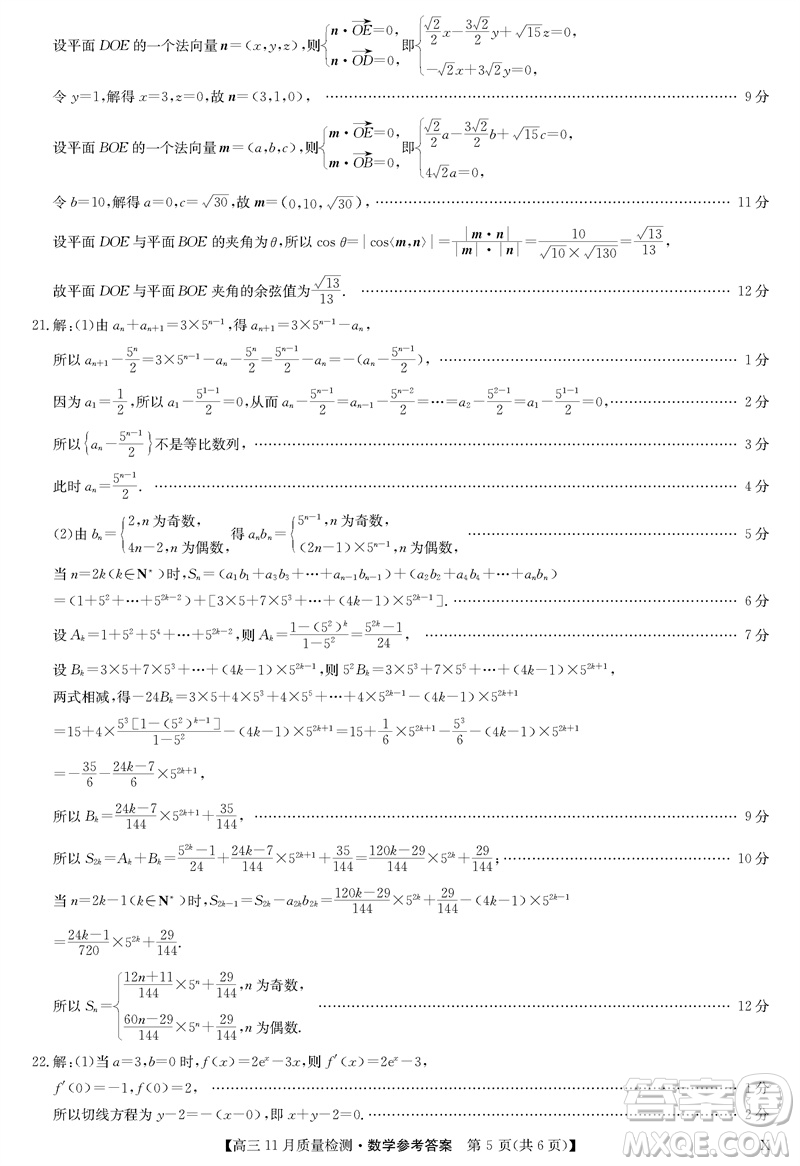 设平面 DOE 的一个法向量 n=(x,y,z),则{n·OE→=0, n·OD→=0, 即{√2/2 x-3√2/2 y+√15z=0, -√2x+3√2y=0,
令 y=1,解得 x=3,z=0,故 n=(3,1,0), …… 9 分
设平面 BOE 的一个法向量 m=(a,b,c),则{m·OE→=0, m·OB→=0, 即{√2/2 a-3√2/2 b+√15c=0, 4√2a=0,
令 b=10,解得 a=0,c=√30,故 m=(0,10,√30), …… 11 分
设平面 DOE 与平面 BOE 的夹角为 θ,所以 cos θ=|cos⟨m,n⟩|=|m·n|/|m|·|n|=10/√10×√130=√13/13,
故平面 DOE 与平面 BOE 夹角的余弦值为√13/13. …… 12 分
21.解:(1)由 aₙ+aₙ₊₁=3×5ⁿ⁻¹,得 aₙ₊₁=3×5ⁿ⁻¹-aₙ,
所以 aₙ₊₁-5ⁿ/2=3×5ⁿ⁻¹-aₙ-5ⁿ/2=5ⁿ⁻¹/2-aₙ=-(aₙ-5ⁿ⁻¹/2), …… 1 分
因为 a₁=1/2,所以 a₁-5¹⁻¹/2=0,从而 aₙ-5ⁿ⁻¹/2=aₙ₋₁-5ⁿ⁻²/2=…=a₂-5²⁻¹/2=a₁-5¹⁻¹/2=0, …… 2 分
所以{aₙ-5ⁿ⁻¹/2}不是等比数列, …… 3 分
此时 aₙ=5ⁿ⁻¹/2. …… 4 分
(2)由 bₙ={2,n 为奇数, 4n-2,n 为偶数, 得 aₙbₙ={5ⁿ⁻¹,n 为奇数, (2n-1)×5ⁿ⁻¹,n 为偶数, …… 5 分
当 n=2k(k∈N*)时,Sₙ=(a₁b₁+a₃b₃+…+aₙ₋₁bₙ₋₁)+(a₂b₂+a₄b₄+…+aₙbₙ)
=(1+5²+…+5²ᵏ⁻²)+[3×5+7×5³+…+(4k-1)×5²ᵏ⁻¹]. …… 6 分
设 Aₖ=1+5²+5⁴+…+5²ᵏ⁻²,则 Aₖ=1-(5²)ᵏ/1-5²=5²ᵏ-1/24, …… 7 分
设 Bₖ=3×5+7×5³+…+(4k-1)×5²ᵏ⁻¹,则 5²Bₖ=3×5³+7×5⁵+…+(4k-1)×5²ᵏ⁺¹,
两式相减,得-24Bₖ=3×5+4×5³+4×5⁵+…+4×5²ᵏ⁻¹-(4k-1)×5²ᵏ⁺¹
=15+4×5³[1-(5²)ᵏ⁻¹]/1-5²-(4k-1)×5²ᵏ⁺¹=15+1/6×5²ᵏ⁺¹-5³/6-(4k-1)×5²ᵏ⁺¹
=-35/6-24k-7/6×5²ᵏ⁺¹,
所以 Bₖ=24k-7/144×5²ᵏ⁺¹+35/144, …… 9 分
所以 S₂ₖ=Aₖ+Bₖ=5²ᵏ-1/24+24k-7/144×5²ᵏ⁺¹+35/144=120k-29/144×5²ᵏ+29/144; …… 10 分
当 n=2k-1(k∈N*)时,S₂ₖ₋₁=S₂ₖ-a₂ₖb₂ₖ=120k-29/144×5²ᵏ+29/144-(4k-1)×5²ᵏ⁻¹
=24k-1/720×5²ᵏ+29/144.
所以 Sₙ={12n+11/144×5ⁿ+29/144,n 为奇数, 60n-29/144×5ⁿ+29/144,n 为偶数. …… 12 分
22.解:(1)当 a=3,b=0 时,f(x)=2eˣ-3x,则 f′(0)=-1,f(0)=2, …… 1 分
所以切线方程为 y-2=-(x-0),即 x+y-2=0. …… 2 分
【高三 11 月质量检测·数学参考答案 第 5 页(共 6 页)】 X